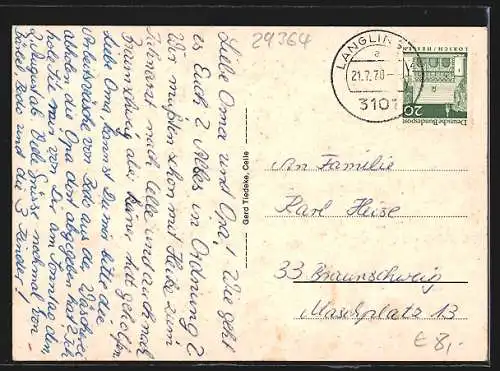 29364
LANGLINGEN
a
21.7.70-
3101
LORSCH / HESSEN
Deutsche Bundespost
20
Liebe Oma und Opa! Wie geht
es Euch 2 Alles in Ordnung?
Wir mußten schon mit Heike zum
Zahnarzt nach Celle und auch nach
Braunschweig aber keiner hat geholfen.
Liebe Oma, kannst Du mir bitte die
Arbeitswäsche von Bodo aus die Wäscherei
abholen die Opa dort abgegeben hat? Ich
hole sie mir von Dir am Sonntag dem
2. August ab. Viele Grüsse nochmal von
Bärbel, Bodo und die 3 Kinder!
Gerd Tiedeke, Celle
An Familie
Karl Heise
33 Braunschweig
Maschplatz 13
€ 8,-